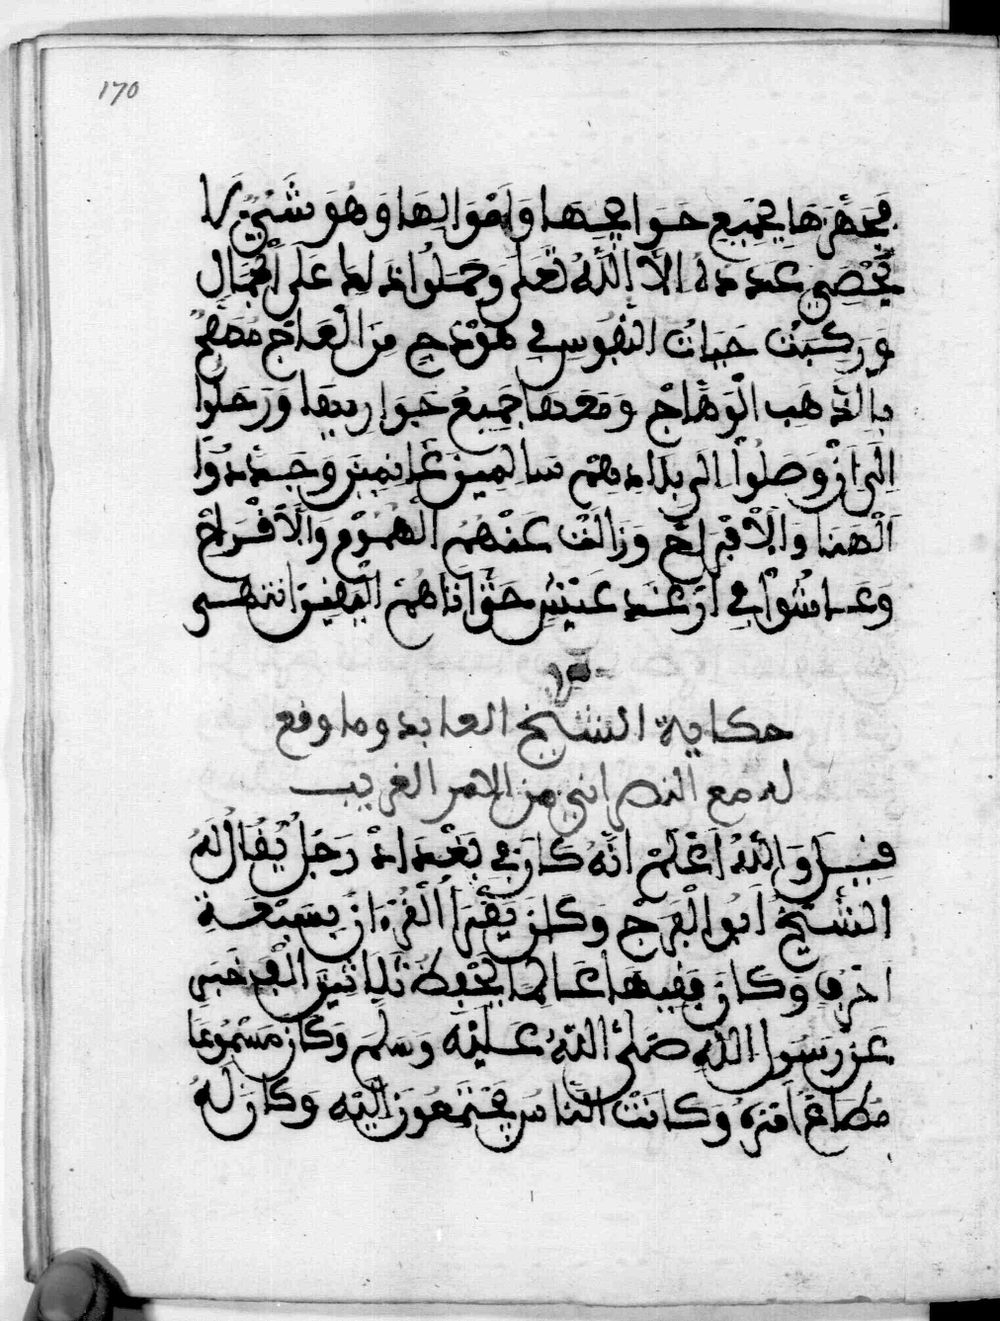 170
فجهزها بجميع حوايجها واموالها وهو شيء لا
يحصي عدده الا الله تعلى وحملوا ذلك على الجمال
وركبت حيات النفوس في هودج من العاج مصفح
بالذهب الوهاج ومعها جميع جواريها ورحلوا
الى ان وصلوا الى بلادهم سالمين غانمين وجددوا
الهنا والافراح وزالت عنهم الهموم والاقراح
وعاشوا في ارغد عيش حتى اتاهم اليقين انتهى
حكاية الشيخ العابد وما وقع
له مع النصراني من الامر الغريب
قيل والله اعلم انه كان في بغداد رجل يقال له
الشيخ ابو الفرج وكان يقرا القرءان بسبعة
احرف وكان فقيها عالما يحفظ ثلاثين الف خبر
عن رسول الله صلى الله عليه وسلم وكان مسموعا
مطاعا امره وكانت الناس يجتمعون اليه وكان له